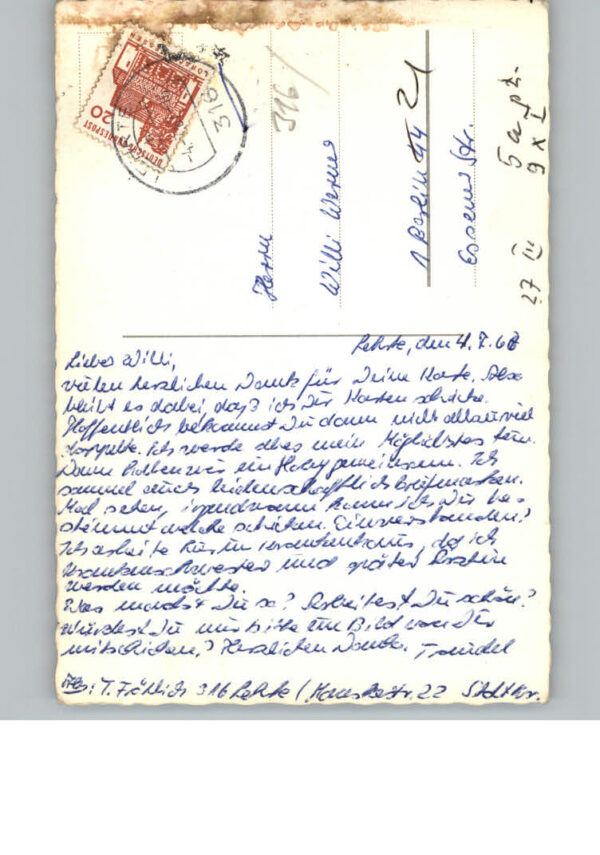 Lehrte, den 4.7.67
Lieber Willi,
vielen herzlichen Dank für Deine Karte. Also
bleibt es dabei, daß ich Dir Karten schicke.
Hoffentlich bekommst Du dann nicht allzuviel
doppelte. Ich werde aber mein Möglichstes tun.
Dann hätten wir ein Hobby gemeinsam. Ich
sammel auch leidenschaftlich Briefmarken.
Mal sehen, irgendwann kann ich Dir be-
stimmt welche schicken. Einverstanden?
Ich arbeite hier im Krankenhaus, da ich
Krankenschwester und später Ärztin
werden möchte.
Was machst Du so? Arbeitest Du schon?
Würdest Du mir bitte ein Bild von Dir
mitschicken? Herzlichen Dank. Traudel
Abs: T. Fröhlich 316 Lehrte / Manskestr. 22
Herrn
Willi Werner
1 Berlin 44 21
Essener Str.
316
DEUTSCHE BUNDESPOST
20
LORSCH HESSEN
316
LEHRTE
27 III
9 x